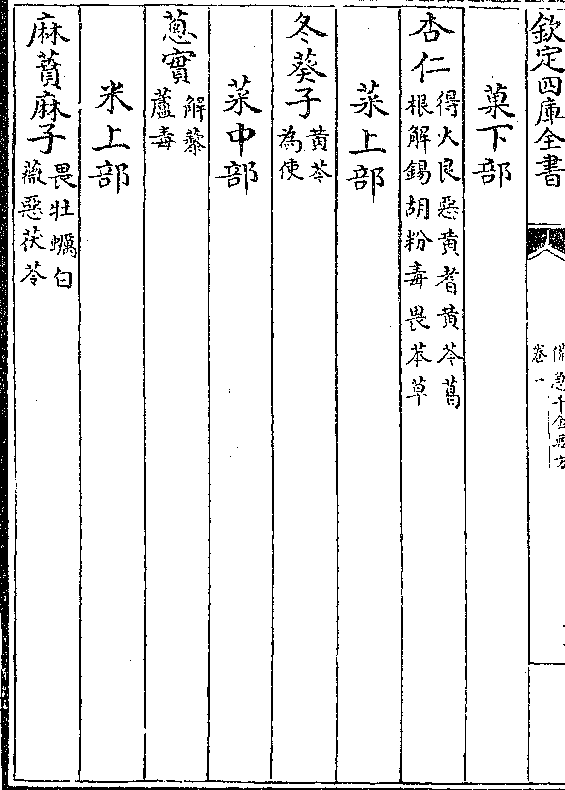 欽定四庫全書
備急千金要方
卷一
菓下部
杏仁
得火良惡黄耆黄芩葛
根解錫胡粉毒畏莽草
菜上部
冬葵子
黄芩
為使
菜中部
蔥實
解藜
蘆毒
米上部
麻蕡麻子
畏牡蠣白
薇惡茯苓